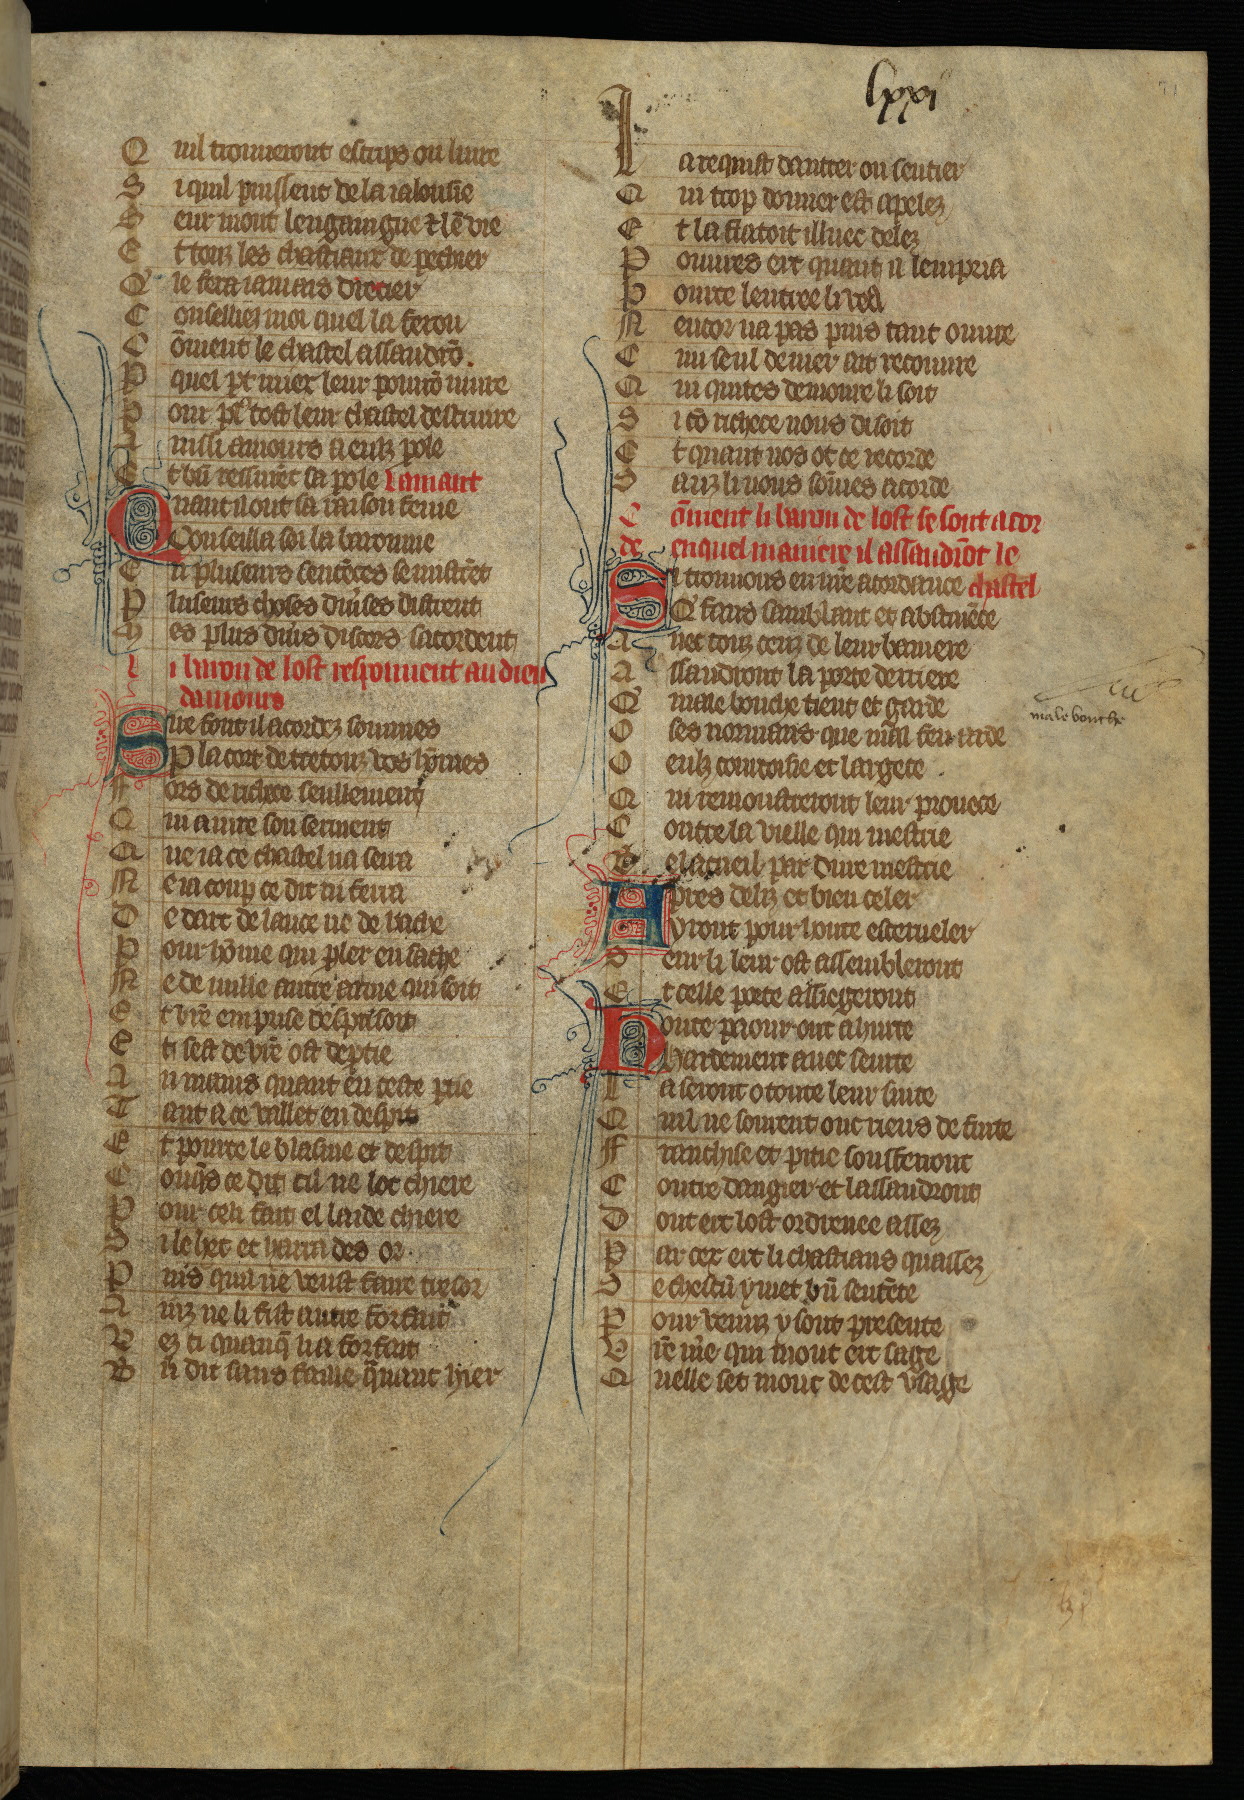 lxxi
71
Q uil trouueront escrips ou liure
S i quil puissent de la ialousie
S eur mont lengaingue & lẽuie
E t touz les chastiaus de pechier
Q ie fera iamais drecier
C onseilliez moi quel la ferou
C õment le chastel assaudrõ
P
P our pl' tost leur chastel destruire
A insi amours a eulz pole
E t bñ resseurẽt sa pole Lamant
Quant il ont sa raison fenie
Conseilla soi la baronnie
E n pluseurs sentẽces se mistrẽt
P luseurs choses diuses distrent
M es plus diuis discors sacordent
L i baron de lost responnent au dieu
damours
Sire font il acordez sommes
P lacort de trestouz vos hõmes
F ors de richece seullement
Q ui a iure son serment
Q ue ia ce chastel na serra
N e ia coup ce dit ni ferra
D e dart de lance ne de hache
P our hõme qui pler en sache
N e de nulle autre arme qui soit
E t vrẽ emprise desprisoit
E t sest de vrẽ ost deptie
A u mains quant en ceste ptie
T ant a ce vallet en despit
E t pource le blasme et despit
C onqs ce dit cil ne lot chiere
P our celi fait el laide chiere
S i le het et harra des or
P uis quil ne veust faire tresor
A inz ne li fist autre forfait
V ez ci quanq̃ li a forfait
B ñ dit sans faille q̃uant hier
L a requist dantrer ou sentier
Q ui trop donner est apelez
E t la flatoit illuec delez
P ouures ert quant il lempria
P ource lentree li vea
N encor na pas puis tant ouure
C un seul denier ait recouure
Q ui quites demoure li soit
S i cõ richece nous disoit
E t quant nos ot ce recorde
S anz li nous sõmes acorde
C õment li baron de lost se sont acor
de en quel maniere il assaudrõt le
Si trouuons en nrẽ acordance chastel
Q faus samblant et abstinẽce
A uec touz ceuz de leur baniere
A ssaudront la porte derriere
Q male bouche tient et garde
male bouche
O ses normans que mal feu arde
O eulz courtoisie et largece
Q ui remonstreront leur prouece
C ontre la vielle qui mestrie
B elacueil par dure mestrie
Apres deliz et bien celer
Yront pour honte escerueler
S eur li leur ost assembleront
E t celle porte assiegeront
Honte paour ont ahurte
Hardement auec seurte
L a seront o toute leur suite
Q uil ne sourent onc riens de fuite
F ranchise et pitie soustenront
C ontre dangier et lassaudront
D ont ert lost ordrenee assez
P ar cex ert li chastiaus quassez
S e chescũ y met bñ sentẽte
P our venuz y sont presente
V rẽ mẽ qui mout ert sage
Q uelle set mout de cest vsage